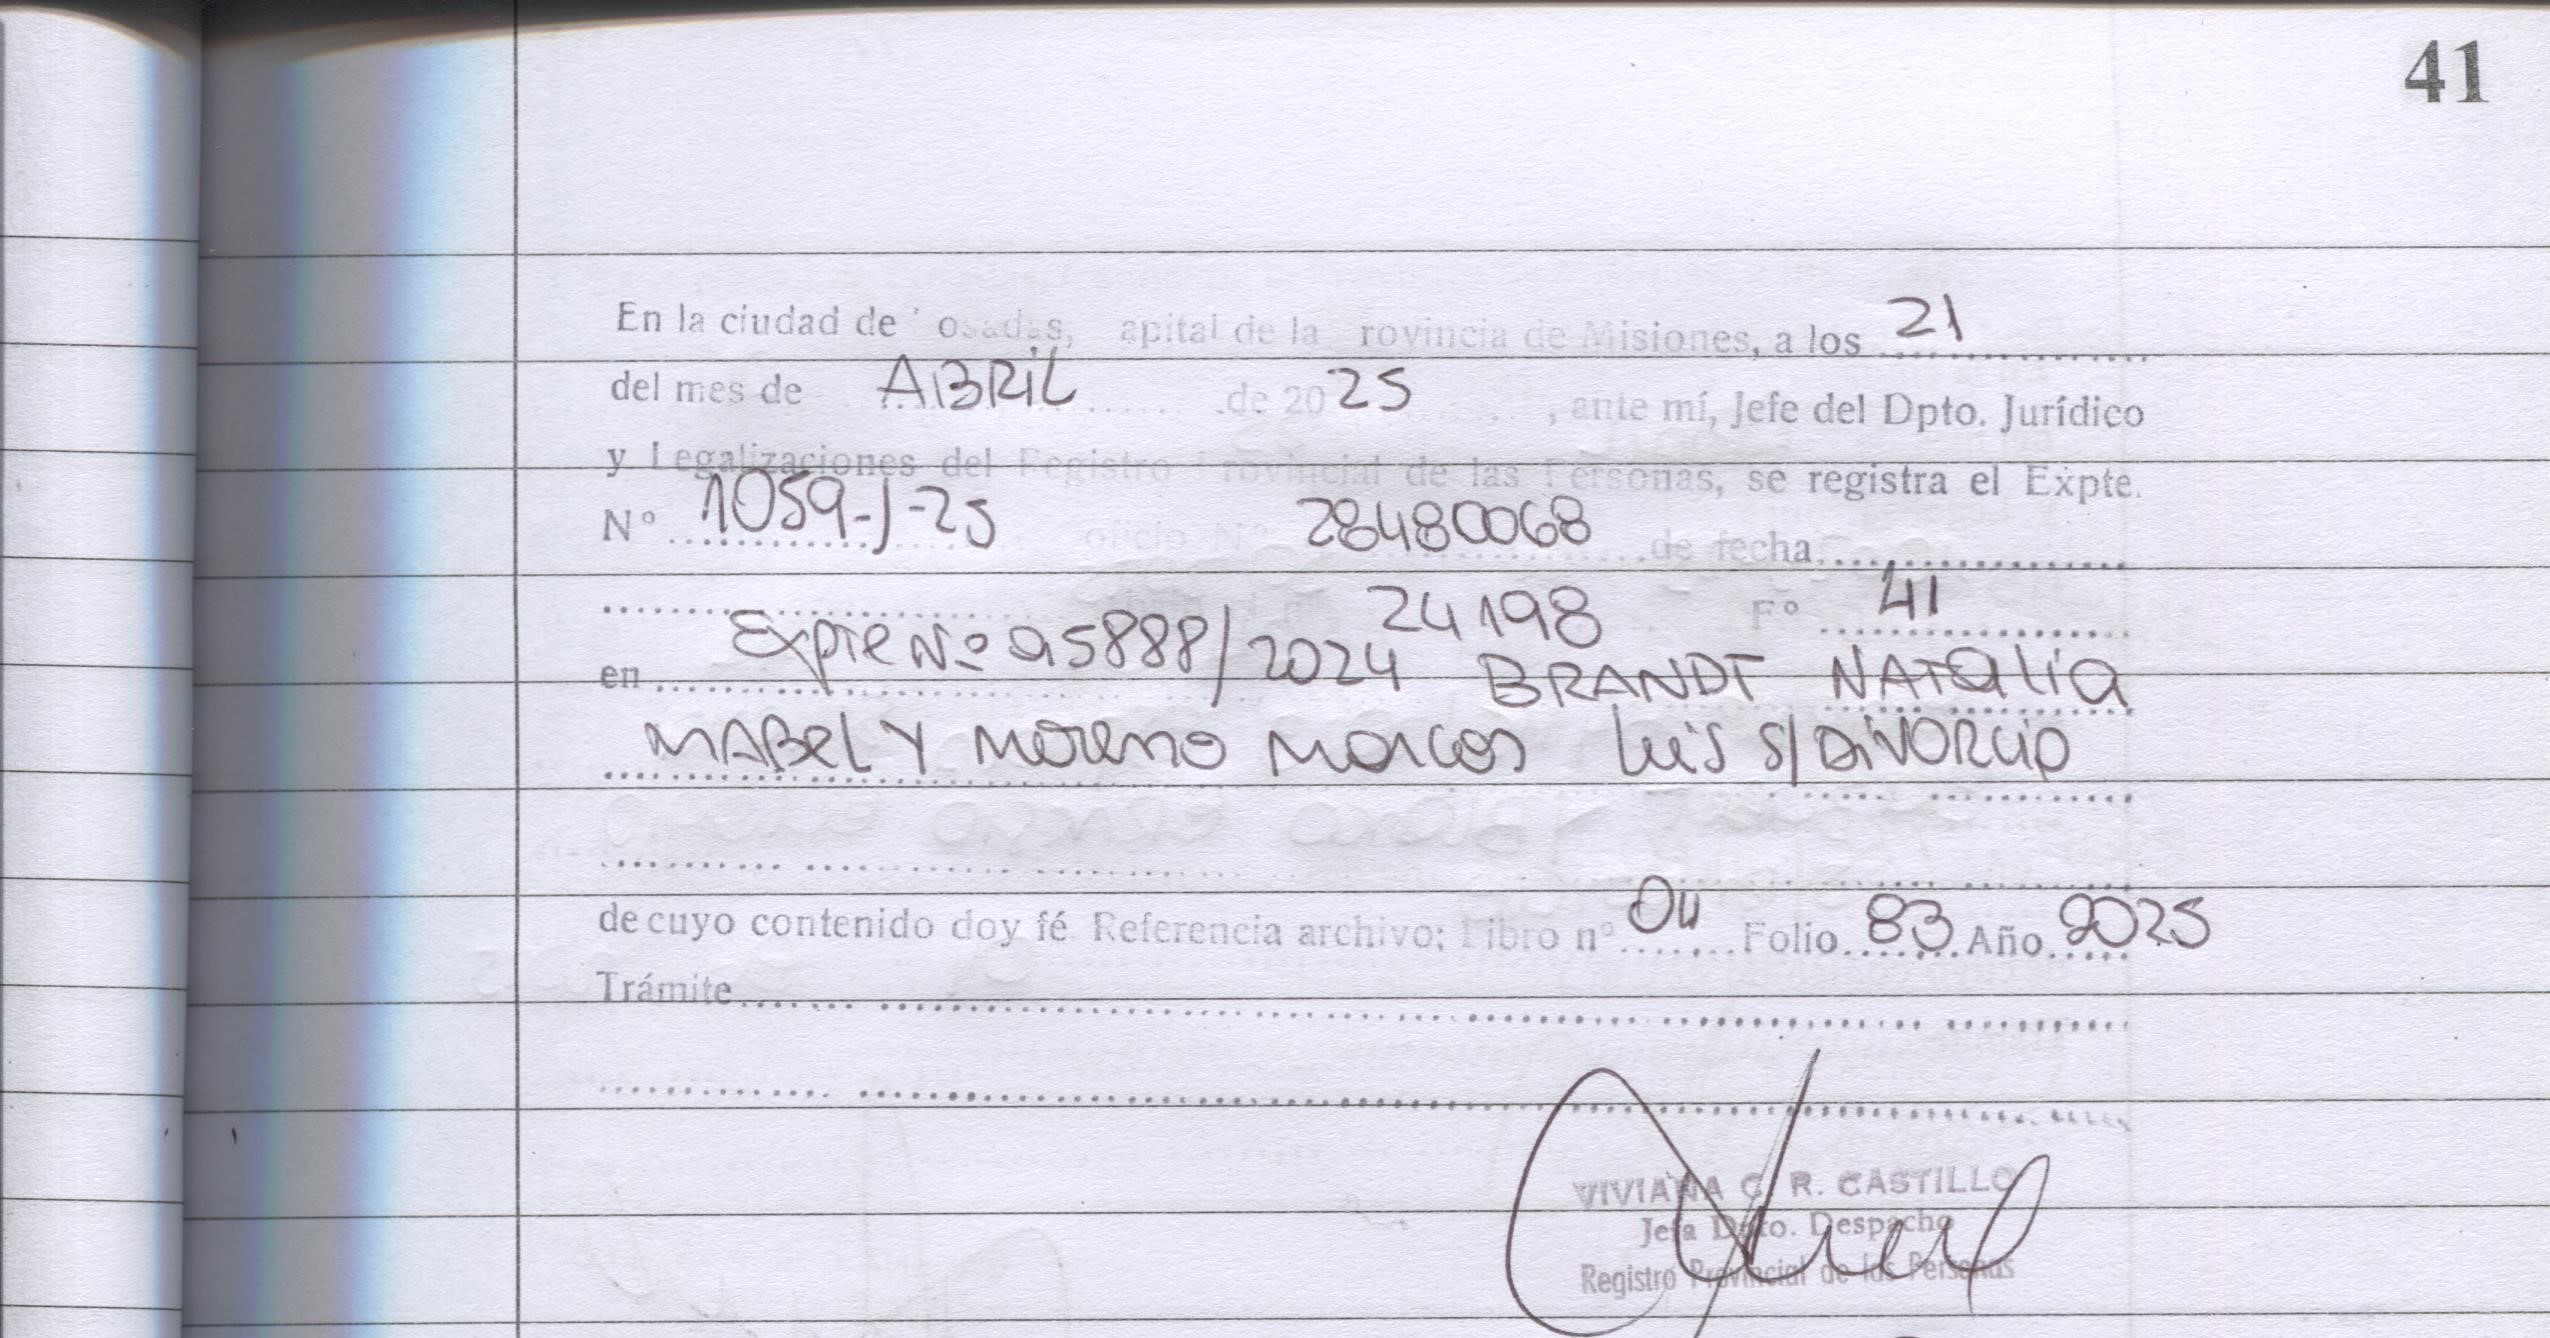 41
En la ciudad de Posadas, Capital de la Provincia de Misiones, a los 21
del mes de ABRIL de 2025, ante mí, Jefe del Dpto. Jurídico
y Legalizaciones del Registro Provincial de las Personas, se registra el Expte.
Nº 1059-J-25 oficio Nº 28480068 de fecha
24198 Fº 41
en Expte Nº 95888/2024 BRANDT NATALIA
MABEL Y MORENO MARCOS LUIS S/DIVORCIO
de cuyo contenido doy fé. Referencia archivo; Libro nº 04 Folio 83 Año 2025
Trámite
VIVIANA C. R. CASTILLO
Jefa Dpto. Despacho
Registro Provincial de las Personas